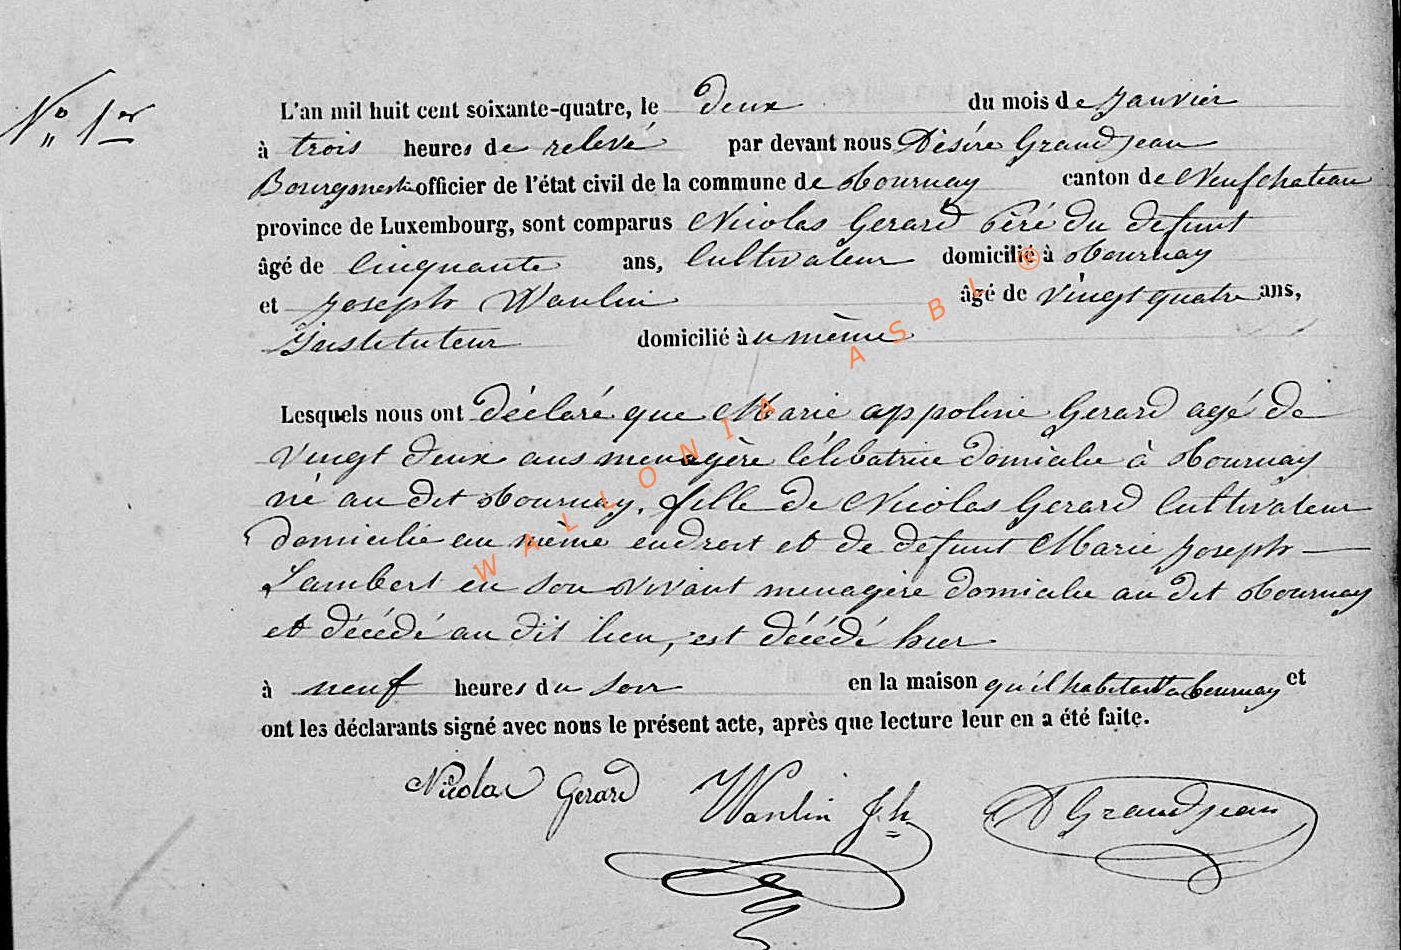 N° 1er
L'an mil huit cent soixante-quatre, le deux du mois de Janvier
à trois heures de relevé par devant nous Désiré Grandjean
Bourgmestre officier de l'état civil de la commune de Tournay canton de Neufchateau
province de Luxembourg, sont comparus Nicolas Gerard Péré du defunt
âgé de Cinquante ans, Cultivateur domicilié à Tournay
et Joseph Wanlin âgé de vingt quatre ans,
Instituteur domicilié à u même
Lesquels nous ont déclaré que Marie appoline Gerard agé de
vingt deux ans menagère Célibatrice domicilie à Tournay
né au dit Tournay, fille de Nicolas Gerard Cultivateur
domicilié au même endroit et de défunt Marie Joseph
Lambert en son vivant menagère domicilie au dit Tournay
et décédé au dit lieu, est décédé hier
à neuf heures du soir en la maison qu'il habitait a Tournay et
ont les déclarants signé avec nous le présent acte, après que lecture leur en a été faite.
Nicolas Gerard Wanlin J.h D Grandjean
WALLONIA ASBL ®